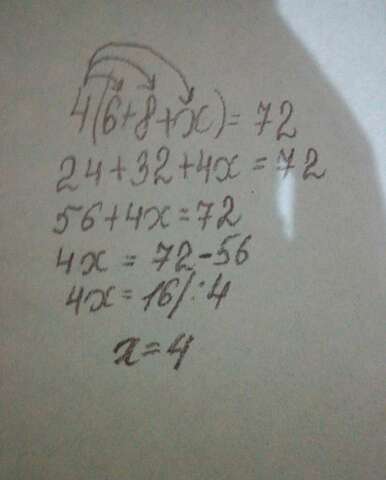 4(6+8+x)=72
24+32+4x=72
56+4x=72
4x=72-56
4x=16/:4
x=4